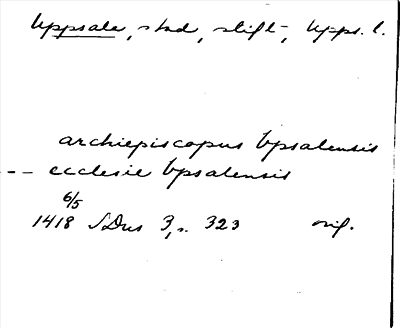 Uppsala, stad, stift, Upps. l.
archiepiscopus Vpsalensis
--- ecclesie Vpsalensis
6/5
1418 SDns 3, s. 323 orig.